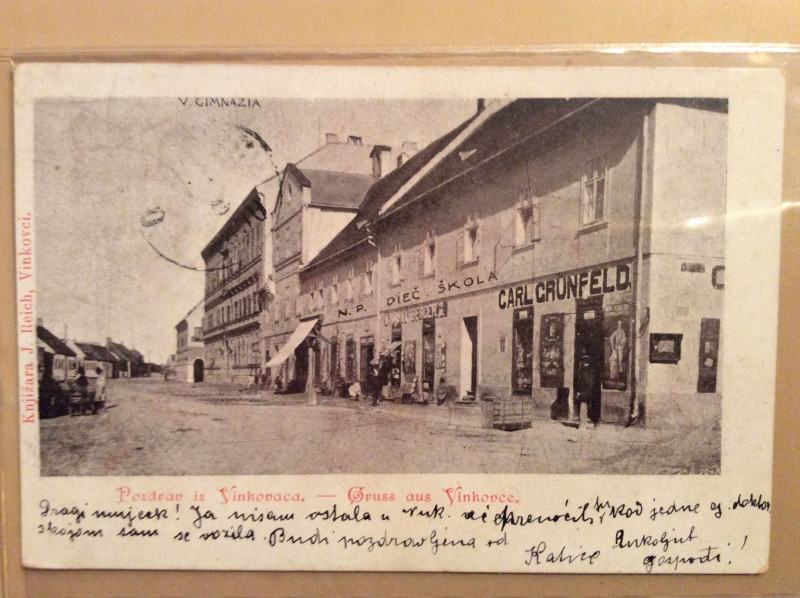 V. GIMNAZIA
N. P. DIEČ ŠKOLA
CARL GRÜNFELD
Knjižara J. Reich, Vinkovci.
Pozdrav iz Vinkovaca. — Gruss aus Vinkovce.
Dragi ! Ja nisam ostala u Vuk. već kod jedne
sam se vozila. Budi pozdravljena od Katice Rukoljub
gospođi!